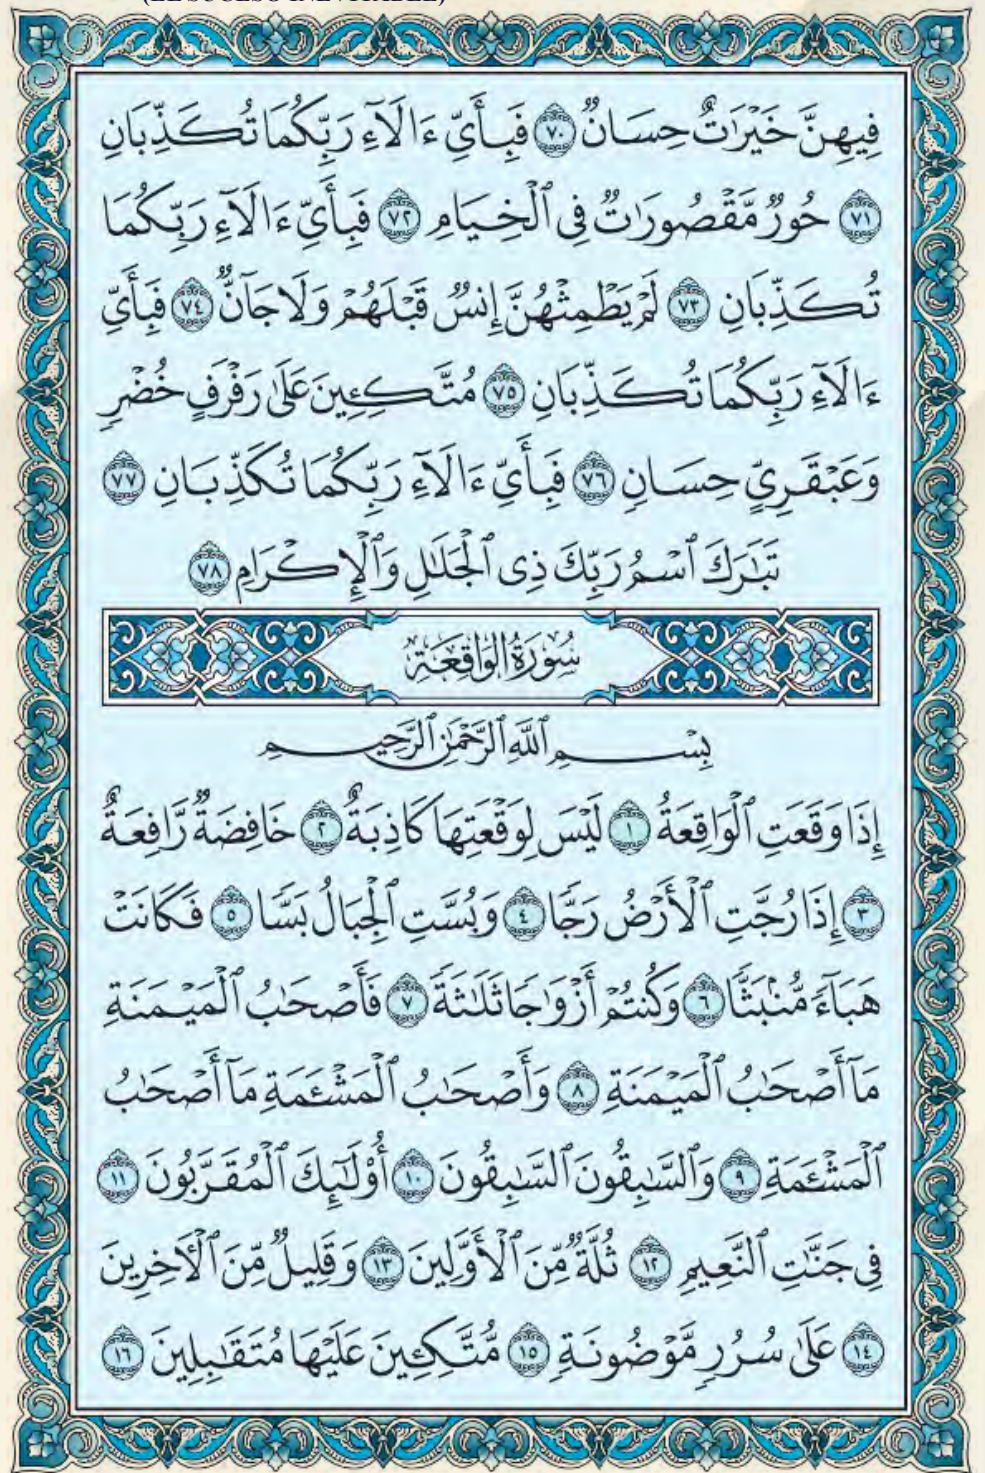 (EL SUCESO INEVITABLE)
فِيهِنَّ خَيْرَٰتٌ حِسَانٌ ٧٠ فَبِأَيِّ ءَالَآءِ رَبِّكُمَا تُكَذِّبَانِ
٧١ حُورٌ مَّقْصُورَٰتٌ فِى ٱلْخِيَامِ ٧٢ فَبِأَيِّ ءَالَآءِ رَبِّكُمَا
تُكَذِّبَانِ ٧٣ لَمْ يَطْمِثْهُنَّ إِنسٌ قَبْلَهُمْ وَلَا جَآنٌّ ٧٤ فَبِأَيِّ
ءَالَآءِ رَبِّكُمَا تُكَذِّبَانِ ٧٥ مُتَّكِـِٔينَ عَلَىٰ رَفْرَفٍ خُضْرٍ
وَعَبْقَرِيٍّ حِسَانٍ ٧٦ فَبِأَيِّ ءَالَآءِ رَبِّكُمَا تُكَذِّبَانِ ٧٧
تَبَٰرَكَ ٱسْمُ رَبِّكَ ذِى ٱلْجَلَٰلِ وَٱلْإِكْرَامِ ٧٨
سُورَةُ الوَاقِعَةِ
بِسْمِ ٱللَّهِ ٱلرَّحْمَٰنِ ٱلرَّحِيمِ
إِذَا وَقَعَتِ ٱلْوَاقِعَةُ ١ لَيْسَ لِوَقْعَتِهَا كَاذِبَةٌ ٢ خَافِضَةٌ رَّافِعَةٌ
٣ إِذَا رُجَّتِ ٱلْأَرْضُ رَجًّا ٤ وَبُسَّتِ ٱلْجِبَالُ بَسًّا ٥ فَكَانَتْ
هَبَآءً مُّنۢبَثًّا ٦ وَكُنتُمْ أَزْوَٰجًا ثَلَٰثَةً ٧ فَأَصْحَٰبُ ٱلْمَيْمَنَةِ
مَآ أَصْحَٰبُ ٱلْمَيْمَنَةِ ٨ وَأَصْحَٰبُ ٱلْمَشْـَٔمَةِ مَآ أَصْحَٰبُ
ٱلْمَشْـَٔمَةِ ٩ وَٱلسَّٰبِقُونَ ٱلسَّٰبِقُونَ ١٠ أُو۟لَٰٓئِكَ ٱلْمُقَرَّبُونَ ١١
فِى جَنَّٰتِ ٱلنَّعِيمِ ١٢ ثُلَّةٌ مِّنَ ٱلْأَوَّلِينَ ١٣ وَقَلِيلٌ مِّنَ ٱلْءَاخِرِينَ
١٤ عَلَىٰ سُرُرٍ مَّوْضُونَةٍ ١٥ مُّتَّكِـِٔينَ عَلَيْهَا مُتَقَٰبِلِينَ ١٦